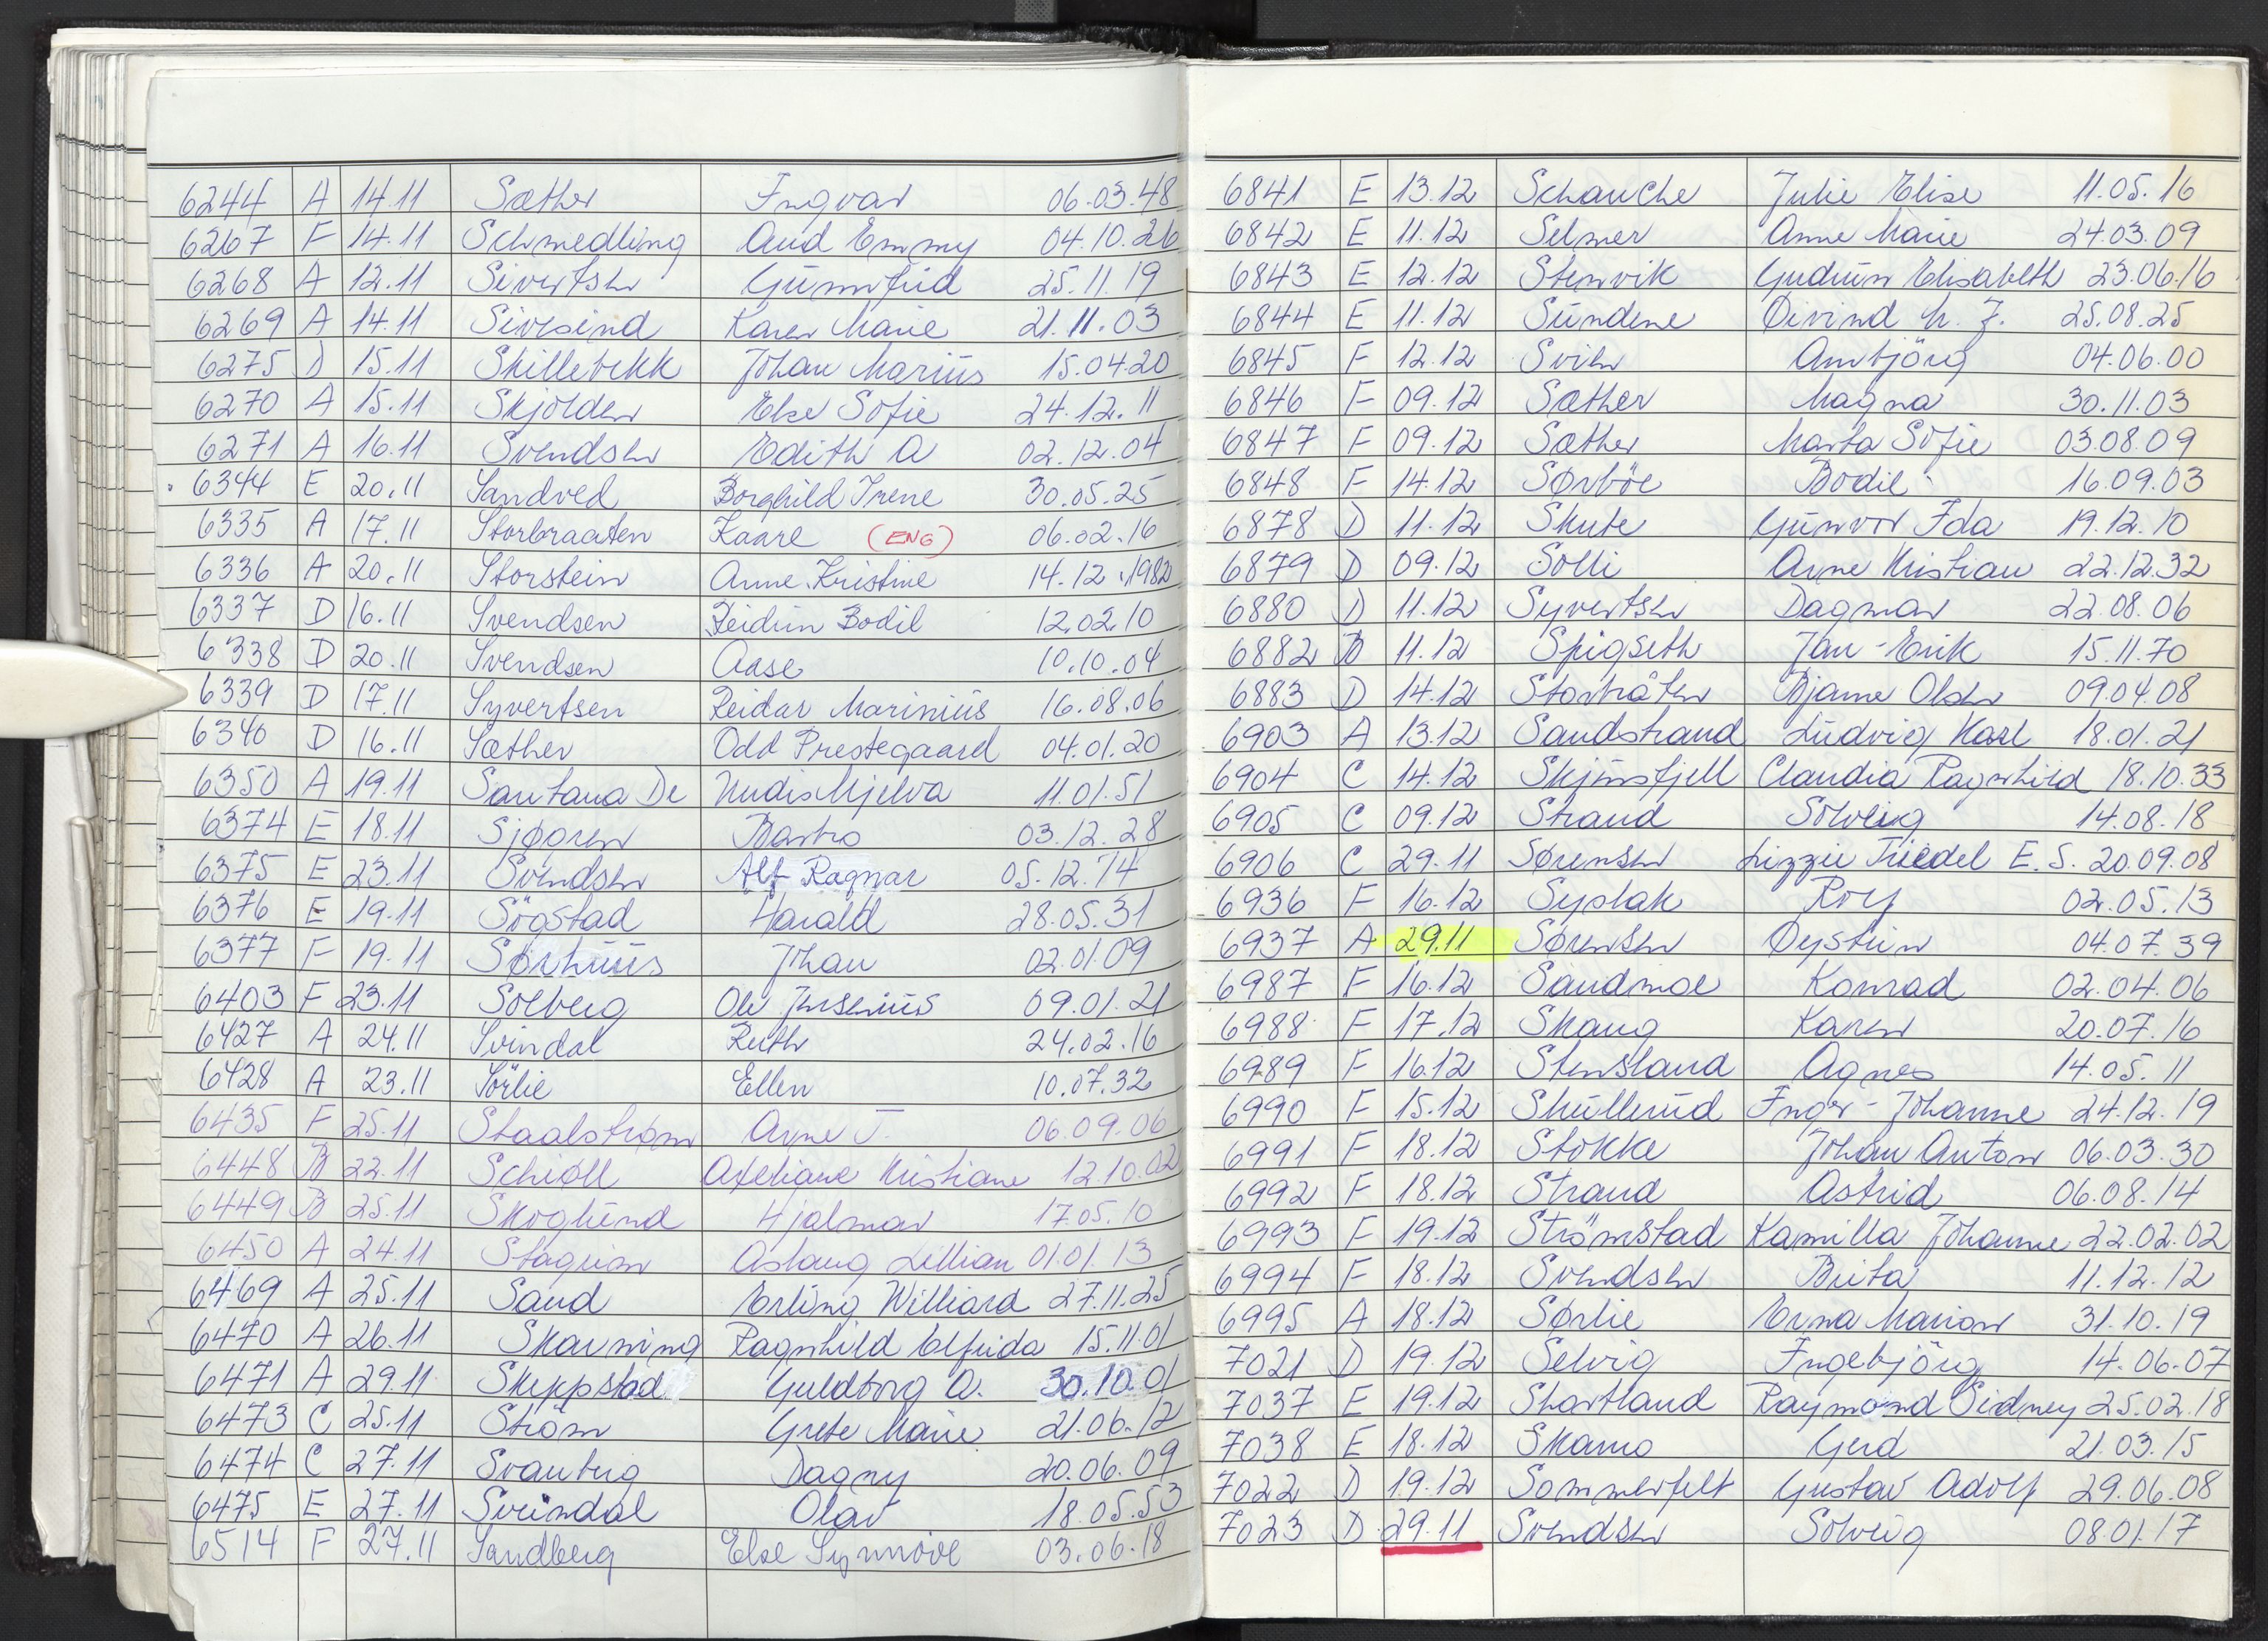 6244 A 14.11 Sæther Ingvar 06.03.48
6267 F 14.11 Schmedling Aud Emmy 04.10.26
6268 A 12.11 Sivertsen Gunnfrid 25.11.19
6269 A 14.11 Sivesind Karen Marie 21.11.03
6275 D 15.11 Skillebekk Johan Marius 15.04.20
6270 A 15.11 Skjolden Else Sofie 24.12.11
6271 A 16.11 Svendsen Edith A 02.12.04
6344 E 20.11 Sandved Borghild Irene 30.05.25
6335 A 17.11 Storbraaten Kaare (ENG) 06.02.16
6336 A 20.11 Storstein Anne Kristine 14.12.1982
6337 D 16.11 Svendsen Reidun Bodil 12.02.10
6338 D 20.11 Svendsen Aase 10.10.04
6339 D 17.11 Syvertsen Reidar Marinius 16.08.06
6340 D 16.11 Sæther Odd Prestegaard 04.01.20
6350 A 19.11 Santana De Mjelva 11.01.51
6374 E 18.11 Sjøgren 03.12.28
6375 E 23.11 Svendsen Alf Ragnar 05.12.74
6376 E 19.11 Sögstad Harald 28.05.31
6377 F 19.11 Sørhuus Johan 02.01.09
6403 F 23.11 Solberg Ole Jensenius 09.01.21
6427 A 24.11 Svindal Ruth 24.02.16
6428 A 23.11 Sörlie Ellen 10.07.32
6435 F 25.11 Staalstrøm Arne J. 06.09.06
6448 B 22.11 Schiøll Axeliane Kristiane 12.10.02
6449 B 25.11 Skoglund Hjalmar 17.05.10
6450 A 24.11 Aslaug Lillian 01.01.13
6469 A 25.11 Sand Erling Williard 27.11.25
6470 A 26.11 Skauning Ragnhild Elfrida 15.11.01
6471 A 29.11 Skeppstad Guldborg A. 30.10.01
6473 C 25.11 Ström Grete Marie 21.06.12
6474 C 27.11 Svanberg Dagny 20.06.09
6475 E 27.11 Svindal Olav 18.05.53
6514 F 27.11 Sandberg Else Synnöve 03.06.18
6841 E 13.12 Schanche Julie Elise 11.05.16
6842 E 11.12 Selmer Anne Marie 24.03.09
6843 E 12.12 Stenvik Gudrun Elisabeth 23.06.16
6844 E 11.12 Sundene Øivind M. J. 25.08.25
6845 F 12.12 Sviën Annbjörg 04.06.00
6846 F 09.12 Sæther Magna 30.11.03
6847 F 09.12 Sæther Marta Sofie 03.08.09
6848 F 14.12 Sørböe Bodil 16.09.03
6878 D 11.12 Skute Gunvor Ida 19.12.10
6879 D 09.12 Solli Arne Kristian 22.12.32
6880 D 11.12 Syvertsen Dagmar 22.08.06
6882 D 11.12 Spigseth Jan-Erik 15.11.70
6883 D 14.12 Storhåten Bjarne Olsen 09.04.08
6903 A 13.12 Sandstrand Ludvig Karl 18.01.21
6904 C 14.12 Skjinsfjell Claudia Ragnhild 18.10.33
6905 C 09.12 Strand Solveig 14.08.18
6906 C 29.11 Sørensen Lizzie Friedel E. S. 20.09.08
6936 F 16.12 Syslak Roy 02.05.13
6937 A 29.11 Sørensen Øystein 04.07.39
6987 F 16.12 Sandmoe Konrad 02.04.06
6988 F 17.12 Skaug Karen 20.07.16
6989 F 16.12 Stensland Agnes 14.05.11
6990 F 15.12 Skullerud Inger-Johanne 24.12.19
6991 F 18.12 Stokke Johan Anton 06.03.30
6992 F 18.12 Strand Astrid 06.08.14
6993 F 19.12 Strömstad Kamilla Johanne 22.02.02
6994 F 18.12 Svendsen Berta 11.12.12
6995 A 18.12 Sørlie Erna Marion 31.10.19
7021 D 19.12 Selvig Ingebjörg 14.06.07
7037 E 19.12 Shartland Raymond Sidney 25.02.18
7038 E 18.12 Skamo Gerd 21.03.15
7022 D 19.12 Sommerfelt Gustav Adolf 29.06.08
7023 D 29.11 Svendsen Solveig 08.01.17